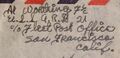 At Worthing F2
U.S.S. A.R.B. 21
c/o Fleet Post Office
San Francisco
Calif.